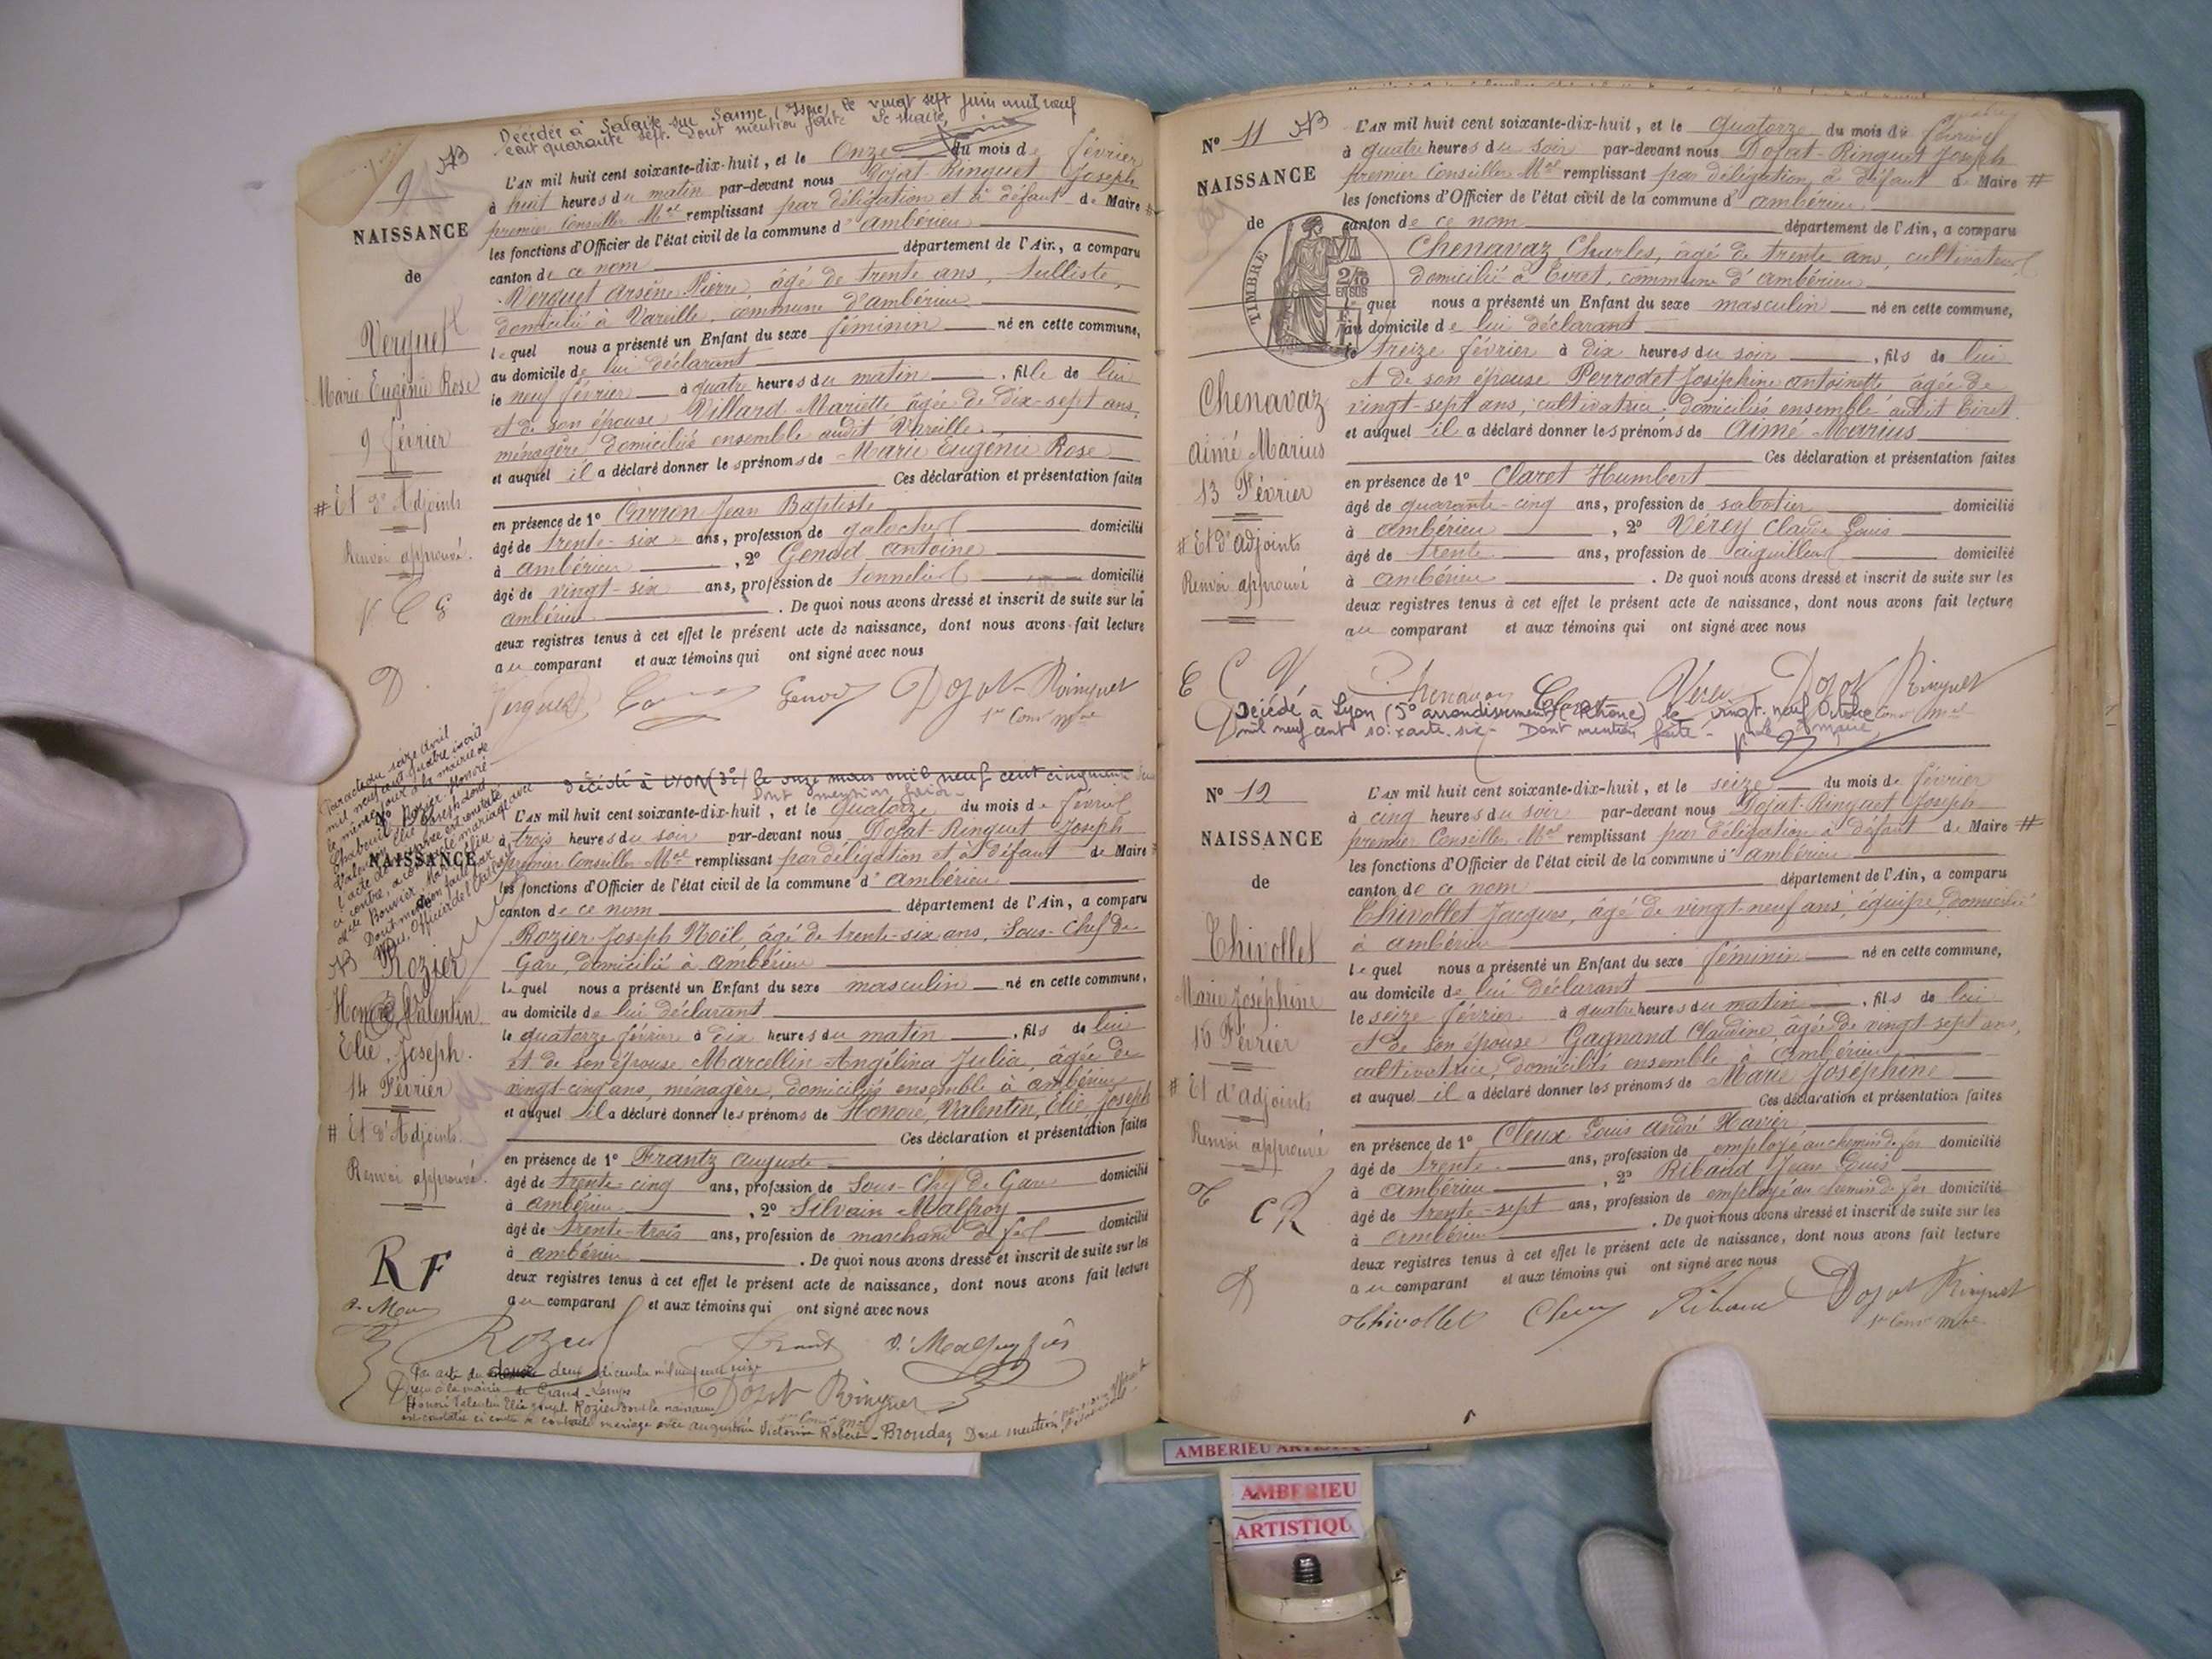 Décédée à Salaise sur Sanne (Isère) le vingt sept juin mil neuf
cent quarante sept. Dont mention faite Le maire
9
NAISSANCE
de
Verguet
Marie Eugénie Rose
9 février
# Et d'Adjoints
Renvoi approuvé.
V C G
D
L'AN mil huit cent soixante-dix-huit, et le onze du mois de février
à huit heures du matin par-devant nous Dojat-Ringuet Joseph
premier Conseiller Mal remplissant par délégation et à défaut de Maire #
les fonctions d'Officier de l'état civil de la commune d'ambérieu
canton de ce nom département de l'Ain, a comparu
Verguet Arsène Pierre, âgé de trente ans, tulliste,
domicilié à Vareille, commune d'ambérieu
lequel nous a présenté un Enfant du sexe féminin né en cette commune,
au domicile de lui déclarant
le neuf février à quatre heures du matin, fille de lui
et de son épouse Villard Mariette âgée de dix-sept ans,
ménagère, domiciliés ensemble audit Vareille
et auquel il a déclaré donner les prénoms de Marie Eugénie Rose
Ces déclaration et présentation faites
en présence de 1° Carron Jean Baptiste
âgé de trente-six ans, profession de galocher domicilié
à ambérieu, 2° Genod antoine
âgé de vingt-six ans, profession de tonnelier domicilié
ambérieu. De quoi nous avons dressé et inscrit de suite sur les
deux registres tenus à cet effet le présent acte de naissance, dont nous avons fait lecture
au comparant et aux témoins qui ont signé avec nous
Verguet Genod Dojat-Ringuet
1er Conser Mal
Décédé à LYON (3e) le onze mars mil neuf cent cinquante
Dont mention faite
NAISSANCE
Rozier
Honoré Valentin
Elie, Joseph.
14 Février
# Et d'Adjoints.
Renvoi approuvé.
R F
L'AN mil huit cent soixante-dix-huit, et le quatorze du mois de février
à trois heures du soir par-devant nous Dojat-Ringuet Joseph
premier Conseiller Mal remplissant par délégation et à défaut de Maire #
les fonctions d'Officier de l'état civil de la commune d'ambérieu
canton de ce nom département de l'Ain, a comparu
Rozier Joseph Noël, âgé de trente-six ans, Sous-Chef de
Gare, domicilié à ambérieu
lequel nous a présenté un Enfant du sexe masculin né en cette commune,
au domicile de lui déclarant
le quatorze février à dix heures du matin, fils de lui
et de son épouse Marcellin Angélina Julia, âgée de
vingt-cinq ans, ménagère, domiciliés ensemble à ambérieu
et auquel il a déclaré donner les prénoms de Honoré, Valentin, Elie, Joseph
Ces déclaration et présentation faites
en présence de 1° Frantz auguste
âgé de trente-cinq ans, profession de Sous-Chef de Gare domicilié
à ambérieu, 2° Silvain Malfroy
âgé de trente-trois ans, profession de marchand de fer domicilié
à ambérieu. De quoi nous avons dressé et inscrit de suite sur les
deux registres tenus à cet effet le présent acte de naissance, dont nous avons fait lecture
au comparant et aux témoins qui ont signé avec nous
Rozier Frantz
Par acte du deux décembre mil neuf cent seize
reçu à la mairie de Grand-Lemps
Honoré Valentin Elie Joseph Rozier dont la naissance Dojat Ringuet
est constatée ci contre a contracté mariage avec augustine Victorine Robert-Brondaz Dont mention
N° 11
NAISSANCE
de
TIMBRE
2/10
EN SUS
Chenavaz
Aimé Marius
13 Février
# Et d'adjoints
Renvoi approuvé
C V
L'AN mil huit cent soixante-dix-huit, et le quatorze du mois de février
à quatre heures du soir par-devant nous Dojat-Ringuet Joseph
premier Conseiller Mal remplissant par délégation à défaut de Maire #
les fonctions d'Officier de l'état civil de la commune d'ambérieu
canton de ce nom département de l'Ain, a comparu
Chenavaz Charles, âgé de trente ans, cultivateur
domicilié à Tiret, commune d'ambérieu
lequel nous a présenté un Enfant du sexe masculin né en cette commune,
au domicile de lui déclarant
le treize février à dix heures du soir, fils de lui
et de son épouse Perrodet Joséphine antoinette âgée de
vingt-sept ans, cultivatrice, domiciliés ensemble audit Tiret
et auquel il a déclaré donner les prénoms de Aimé Marius
Ces déclaration et présentation faites
en présence de 1° Claret Humbert
âgé de quarante-cinq ans, profession de sabotier domicilié
à ambérieu, 2° Vérey Claude Louis
âgé de trente ans, profession de aiguilleur domicilié
à ambérieu. De quoi nous avons dressé et inscrit de suite sur les
deux registres tenus à cet effet le présent acte de naissance, dont nous avons fait lecture
au comparant et aux témoins qui ont signé avec nous
Chenavaz Claret Vérey Dojat Ringuet
Décédé à Lyon (5e arrondissement) (Rhône) le vingt neuf Octobre
mil neuf cent soixante six - Dont mention faite -
N° 12
NAISSANCE
de
Thivollet
Marie Joséphine
16 Février
# Et d'adjoints
Renvoi approuvé
T C R
D
L'AN mil huit cent soixante-dix-huit, et le seize du mois de février
à cinq heures du soir par-devant nous Dojat-Ringuet Joseph
premier Conseiller Mal remplissant par délégation à défaut de Maire #
les fonctions d'Officier de l'état civil de la commune d'ambérieu
canton de ce nom département de l'Ain, a comparu
Thivollet Jacques, âgé de vingt-neuf ans, équipe, domicilié
à ambérieu
lequel nous a présenté un Enfant du sexe féminin né en cette commune,
au domicile de lui déclarant
le seize février à quatre heures du matin, fils de lui
et de son épouse Gagnand Claudine, âgée de vingt-sept ans,
cultivatrice, domiciliés ensemble à ambérieu
et auquel il a déclaré donner les prénoms de Marie Joséphine
Ces déclaration et présentation faites
en présence de 1° Cleux Louis andré Xavier
âgé de trente ans, profession de employé au chemin de fer domicilié
à ambérieu, 2° Riband Jean Louis
âgé de trente-sept ans, profession de employé au chemin de fer domicilié
à ambérieu. De quoi nous avons dressé et inscrit de suite sur les
deux registres tenus à cet effet le présent acte de naissance, dont nous avons fait lecture
au comparant et aux témoins qui ont signé avec nous
Thivollet Cleux Riband Dojat Ringuet
1er Conser Mal
AMBERIEU ARTISTIQ
AMBERIEU
ARTISTIQU